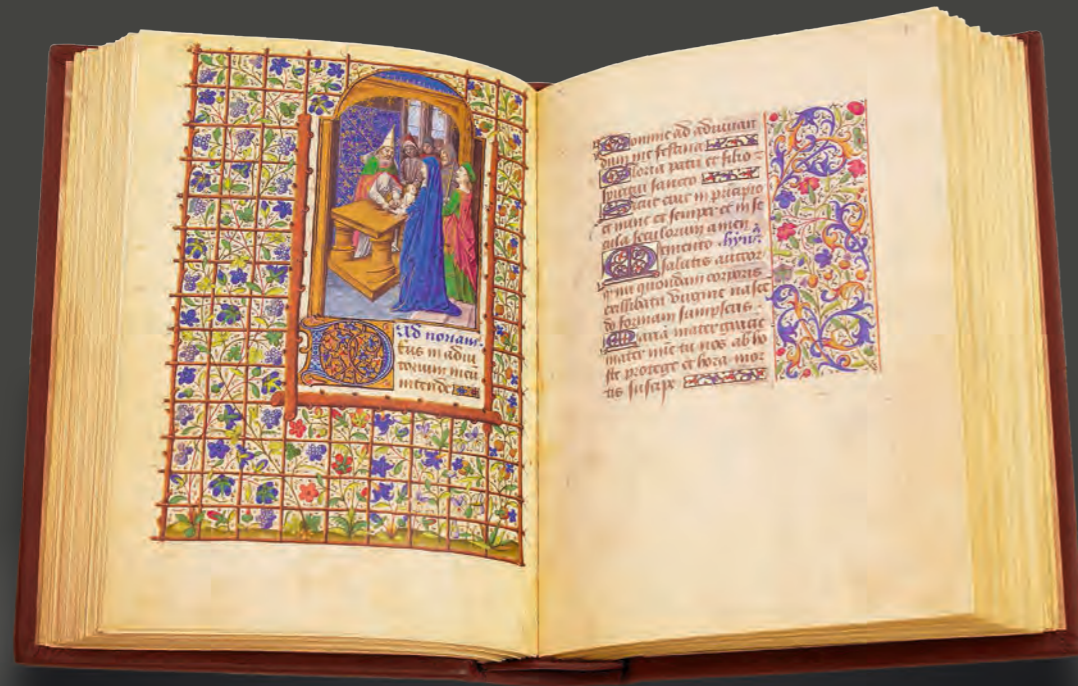 Ad nonam.
tus in adiu
torium meū
intende
Domine ad adiuuan
dum me festina
Gloria patri et filio
spiritui sancto
Sicut erat in principio
et nunc et semper et in se
cula seculorum amen
Memento hyn᷒
salutis auctor
q̄ nr̄i quondam corporis
ex illibata virgine nascē
do formam sumpseris.
Maria mater gracie
mater mīe tu nos ab ho
ste protege et hora mor
tis suscipe